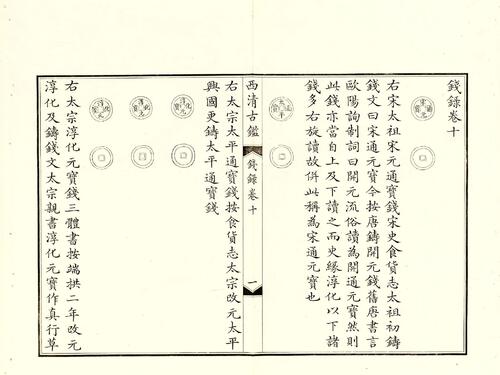 錢錄卷十
宋通元寶
右宋太祖宋元通寶錢宋史食貨志太祖初鑄
錢文曰宋通元寶今按唐鑄開元錢舊唐書言
歐陽詢制詞曰開元流俗讀為開通元寶然則
此錢亦當自上及下讀之而史緣淳化以下諸
錢多右旋讀故併此稱為宋通元寶也
太平通寶
右太宗太平通寶錢按食貨志太宗改元太平
興國更鑄太平通寶錢
西清古鑑
錢錄卷十
一
淳化元寶
淳化元寶
淳化元寶
右太宗淳化元寶錢三體書按端拱二年改元
淳化及鑄錢文太宗親書淳化元寶作真行草